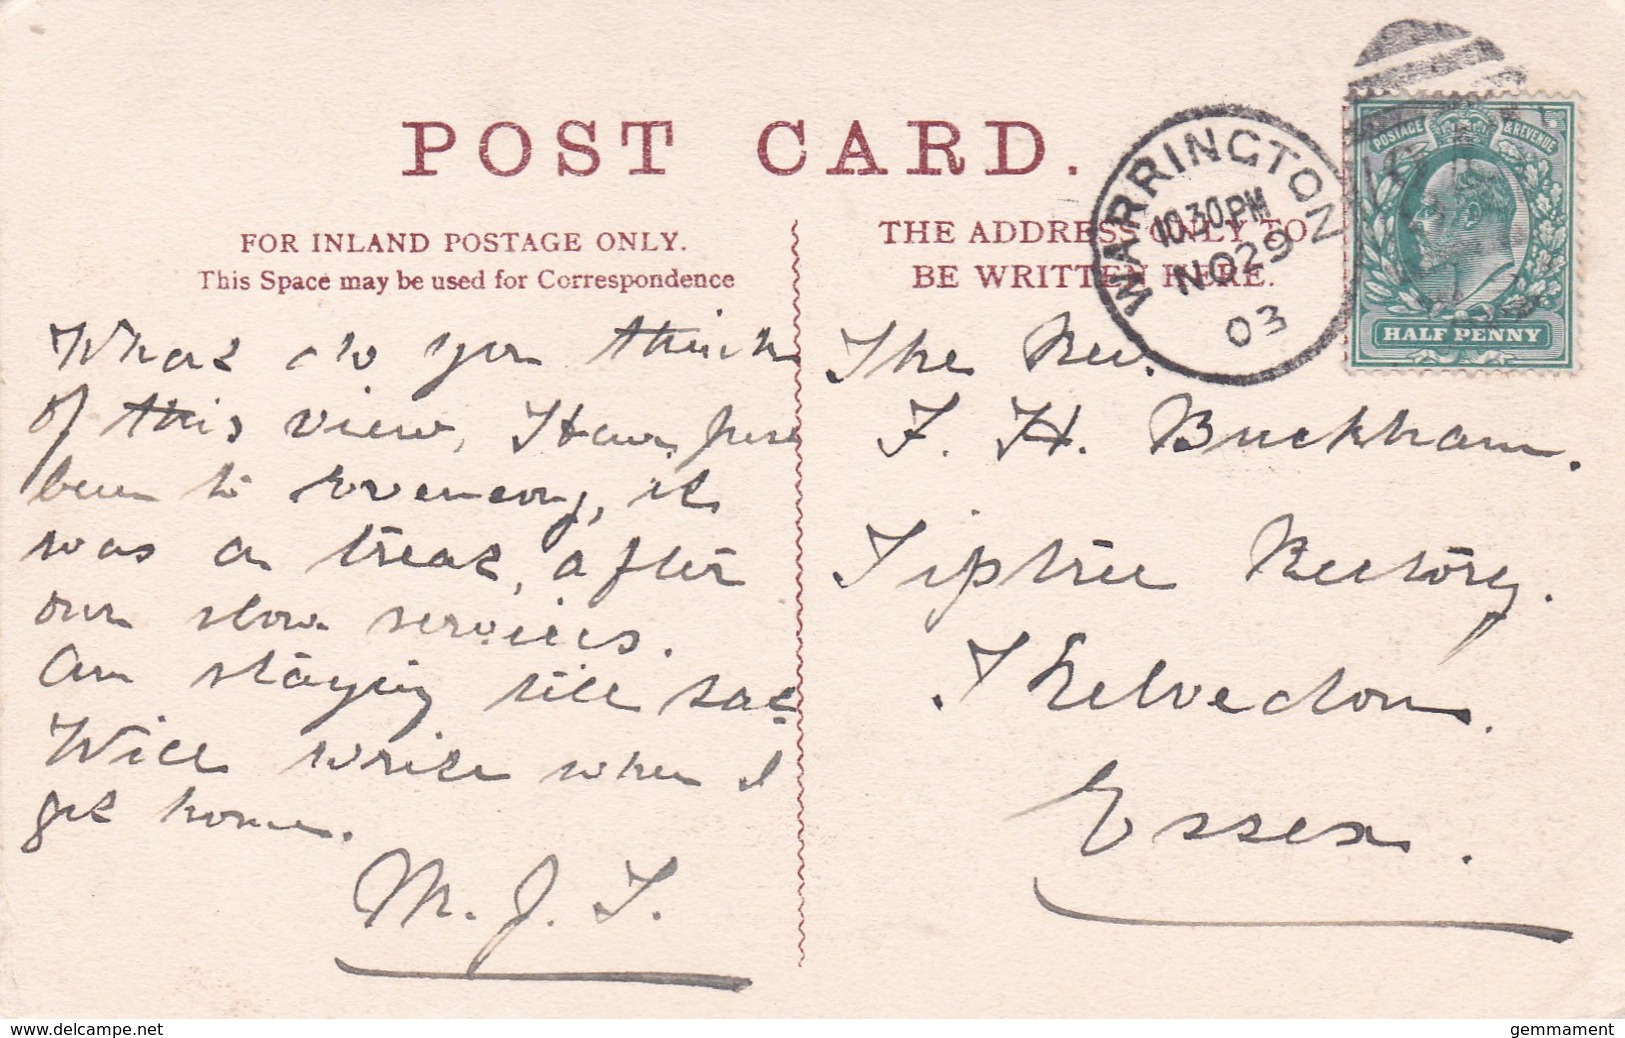 POST CARD.
FOR INLAND POSTAGE ONLY.
This Space may be used for Correspondence
THE ADDRESS ONLY TO
BE WRITTEN HERE.
WARRINGTON
10.30PM
NO 29
03
POSTAGE & REVENUE
HALF PENNY
What do you think
of this view, I have just
been to evensong, it
was a treat, after
our slow services.
Am staying till Sat
Will write when I
get home.
M. J. T.
The Rev.
F. H. Buckham.
Tiptree Rectory.
Kelvedon.
Essex.
www.delcampe.net
gemmament